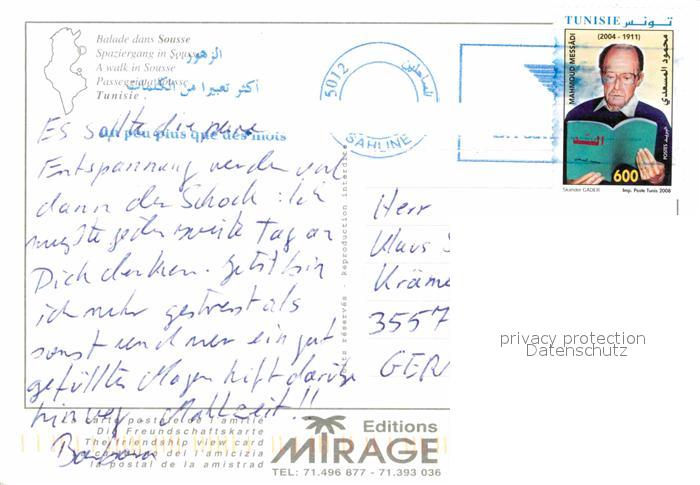 Balade dans Sousse
Spaziergang in Sousse
A walk in Sousse
Passeggiata Sousse
Tunisie
الزهور..
أكثر تعبيرا من الكلمات
un peu plus que des mots
5012
الساحلين
SAHLINE
TUNISIE تونس
(2004 - 1911)
MAHMOUD MESSÂDI
محمود المسعدي
السد
بريد
POSTES
600
Skander GADER Imp. Poste Tunis 2008
Es sollte die reine
Entspannung werden und
dann der Schock: Ich
mußte jeden zweite Tag an
Dich denken. Jetzt bin
ich mehr gestresst als
sonst und nur ein gut
gefüllter Magen hilft darüber
hinweg. Mahlzeit!!
réservés - Reproduction interdite
Herr
Klaus S
Kräme
3557
GER
privacy protection
Datenschutz
La carte postale de l'amitié
Die Freundschaftskarte
The friendship view card
La cartolina del l'amicizia
la postal de la amistrad
Editions
MIRAGE
TEL: 71.496 877 - 71.393 036